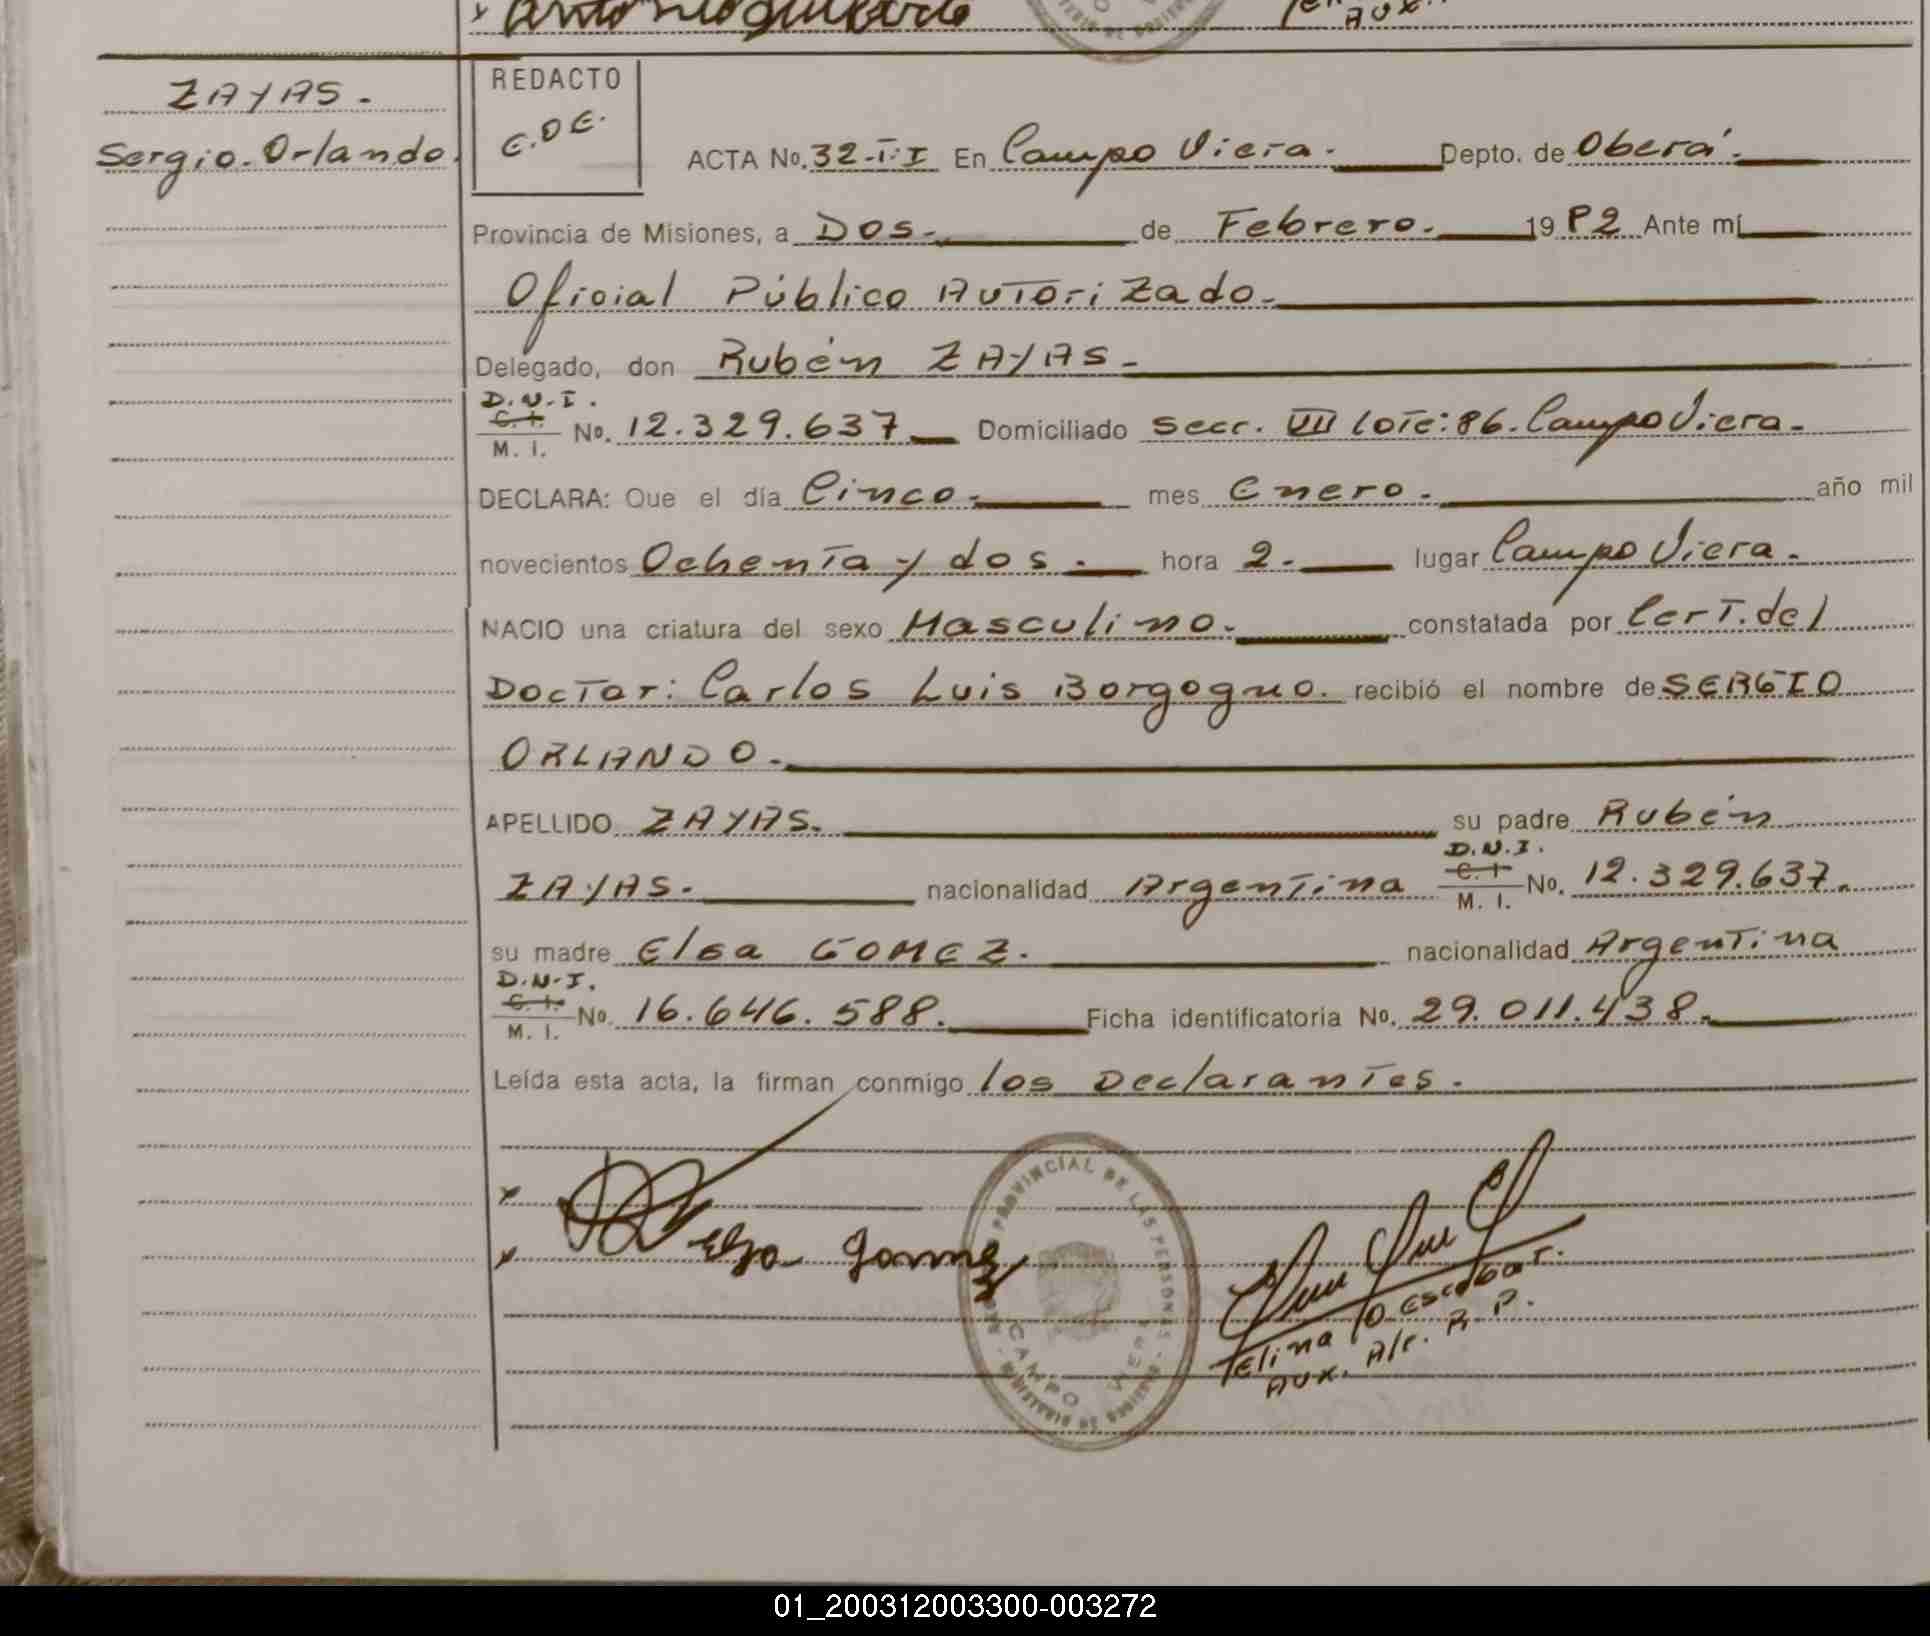 Antonio
Aux.
ZAYAS.
Sergio. Orlando.
REDACTO
E.D.E.
ACTA No. 32-T:I En Campo Viera. Depto. de Oberá.
Provincia de Misiones, a Dos. de Febrero. 1982 Ante mí
Oficial Público Autorizado.
Delegado, don Rubén ZAYAS.
D.N.I.
C. I.
M. I. No. 12.329.637 Domiciliado Secc. VII Lote: 86. Campo Viera.
DECLARA: Que el día Cinco. mes Enero. año mil
novecientos Ochenta y dos. hora 2. lugar Campo Viera.
NACIO una criatura del sexo Masculino. constatada por Cert. del
Doctor: Carlos Luis Borgogno. recibió el nombre de SERGIO
ORLANDO.
APELLIDO ZAYAS. su padre Rubén
ZAYAS. nacionalidad Argentina D.N.I. C. I. M. I. No. 12.329.637.
su madre Elsa GOMEZ. nacionalidad Argentina
D.N.I.
C. I.
M. I. No. 16.646.588. Ficha identificatoria No. 29.011.438.
Leída esta acta, la firman conmigo los Declarantes.
x
x Elsa Gomez
PROVINCIAL DE LAS PERSONAS
CAMPO VIERA
Telina O Escobar.
Aux. A/c. R. P.
01_200312003300-003272